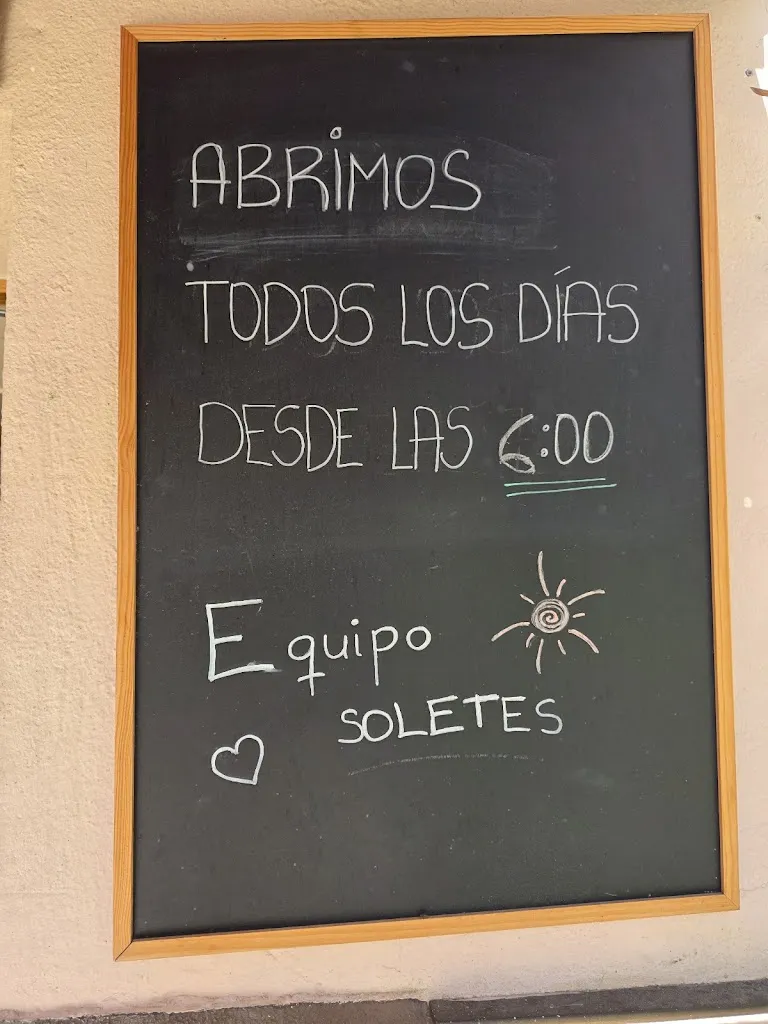 ABRIMOS
TODOS LOS DÍAS
DESDE LAS 6:00
Equipo
SOLETES